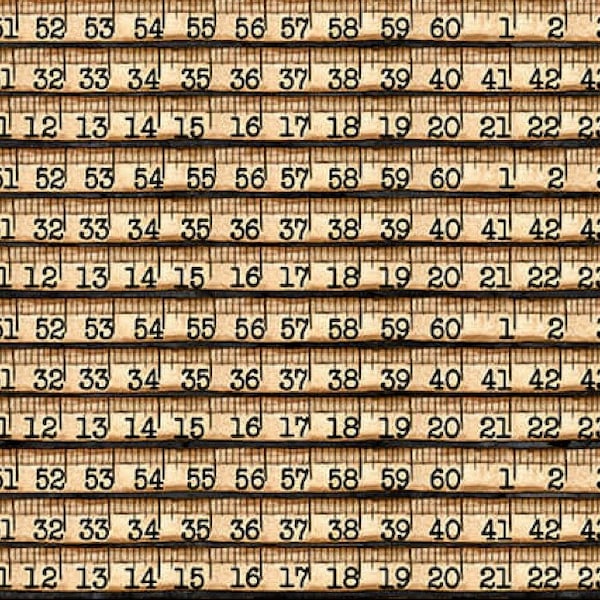 51 52 53 54 55 56 57 58 59 60 1 2 3
1 32 33 34 35 36 37 38 39 40 41 42 43
1 12 13 14 15 16 17 18 19 20 21 22 23
51 52 53 54 55 56 57 58 59 60 1 2 3
1 32 33 34 35 36 37 38 39 40 41 42 43
1 12 13 14 15 16 17 18 19 20 21 22 23
51 52 53 54 55 56 57 58 59 60 1 2 3
1 32 33 34 35 36 37 38 39 40 41 42 43
1 12 13 14 15 16 17 18 19 20 21 22 23
51 52 53 54 55 56 57 58 59 60 1 2 3
1 32 33 34 35 36 37 38 39 40 41 42 43
1 12 13 14 15 16 17 18 19 20 21 22 23